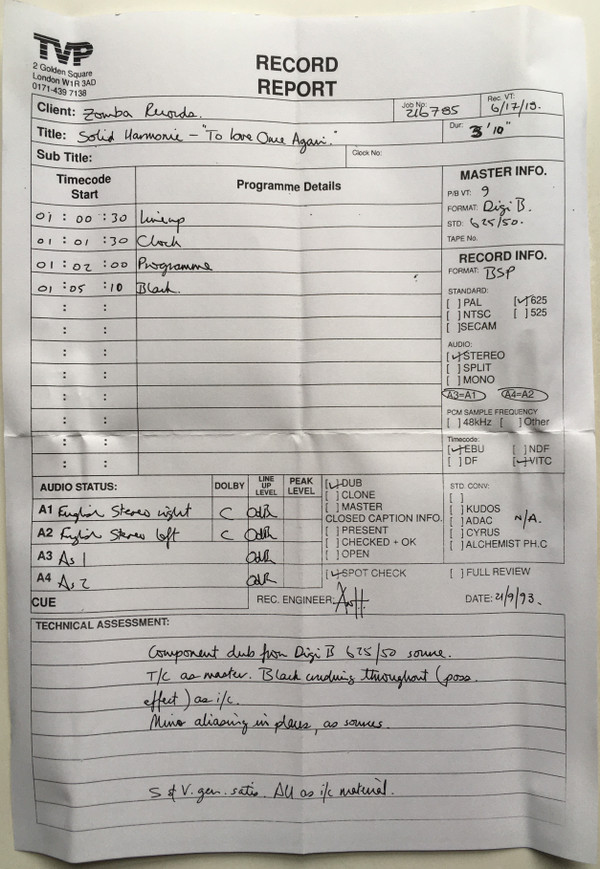 TVP
2 Golden Square
London W1R 3AD
0171-439 7138
RECORD
REPORT
Client: Zomba Records.
Job No: 216785
Rec. VT: 6/17/15.
Title: Solid Harmonie - "To Love Once Again."
Dur: 3'10"
Sub Title:
Clock No:
Timecode
Start
Programme Details
01 : 00 : 30 Lineup
01 : 01 : 30 Clock
01 : 02 : 00 Programme
01 : 05 : 10 Black.
: :
: :
: :
: :
: :
: :
: :
MASTER INFO.
P/B VT: 9
FORMAT: Digi B.
STD: 625/50.
TAPE No.
RECORD INFO.
FORMAT: BSP
STANDARD:
[ ] PAL [✓] 625
[ ] NTSC [ ] 525
[ ] SECAM
AUDIO:
[✓] STEREO
[ ] SPLIT
[ ] MONO
A3=A1 A4=A2
PCM SAMPLE FREQUENCY
[ ] 48kHz [ ] Other
Timecode:
[✓] EBU [ ] NDF
[ ] DF [✓] VITC
AUDIO STATUS: DOLBY LINE UP LEVEL PEAK LEVEL
A1 English Stereo right C 0dB
A2 English Stereo left C 0dB
A3 As 1 0dB
A4 As 2 0dB
CUE
[✓] DUB
[ ] CLONE
[ ] MASTER
CLOSED CAPTION INFO.
[ ] PRESENT
[ ] CHECKED + OK
[ ] OPEN
STD. CONV:
[ ]
[ ] KUDOS
[ ] ADAC N/A.
[ ] CYRUS
[ ] ALCHEMIST PH.C
[✓] SPOT CHECK [ ] FULL REVIEW
REC. ENGINEER:
DATE: 21/9/93.
TECHNICAL ASSESSMENT:
Component dub from Digi B 625/50 source.
T/C as master. Black crushing throughout (poss.
effect) as i/c.
Minor aliasing in places, as source.
S & V. gen. satis. All as i/c material.